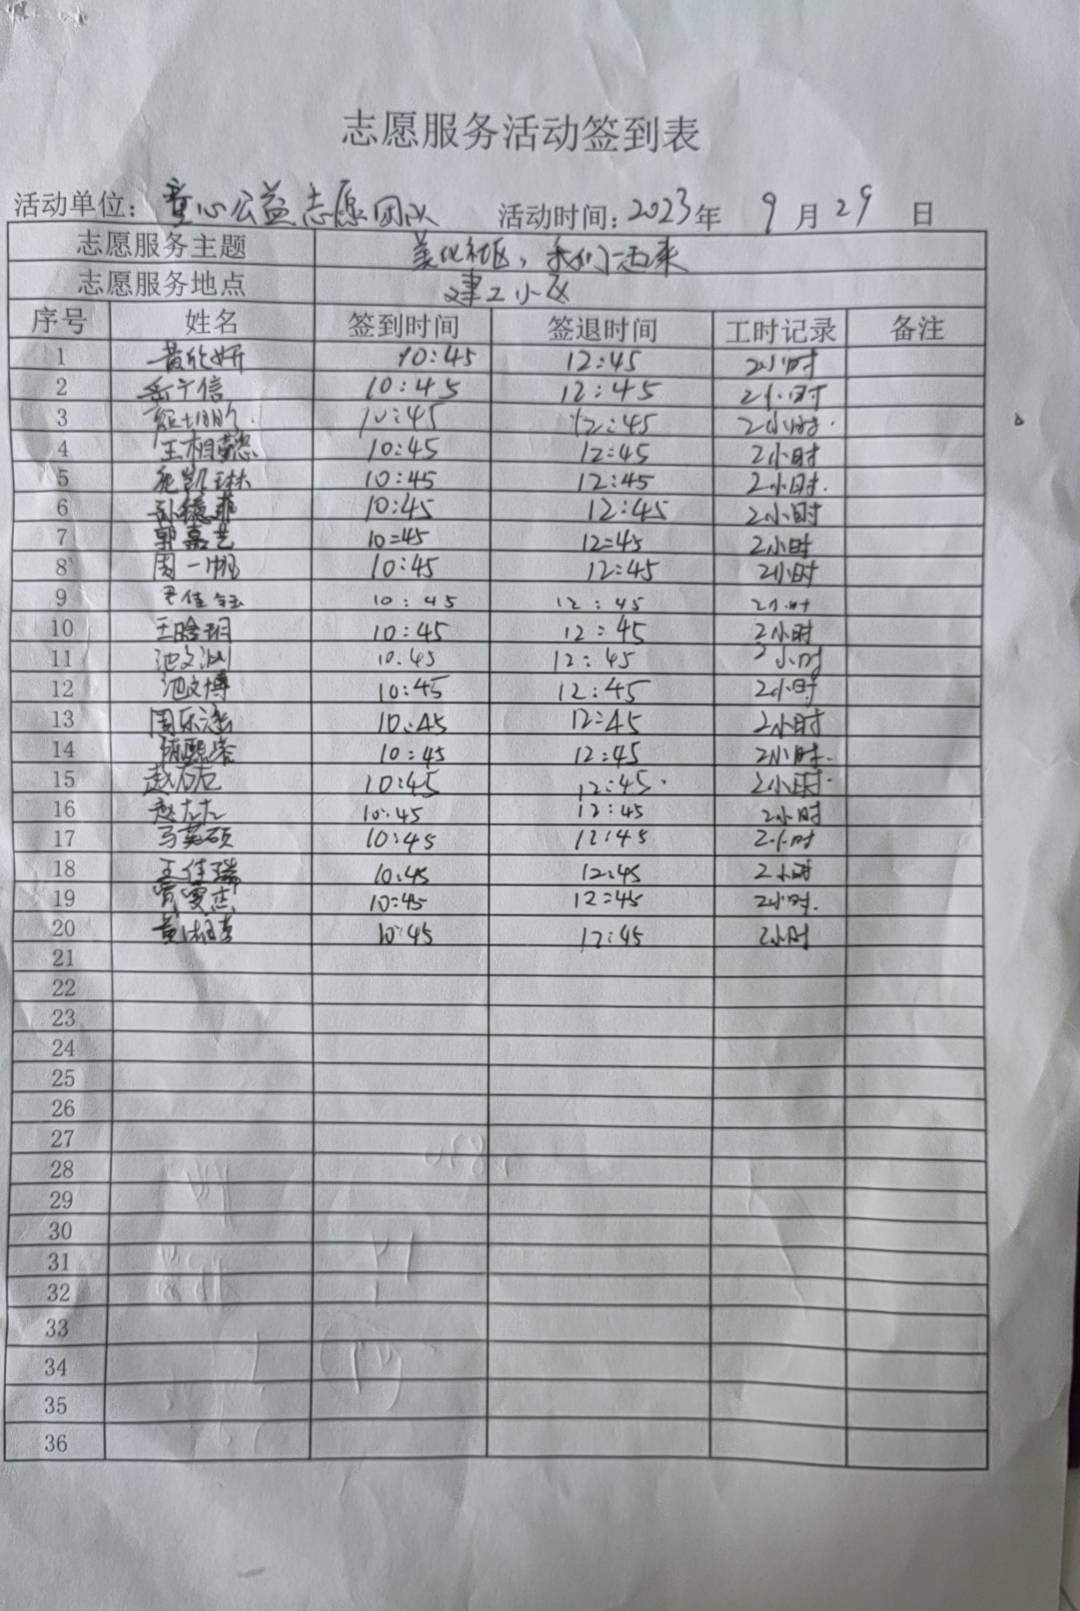 志愿服务活动签到表
活动单位：童心公益志愿团队 活动时间：2023年 9月29日
志愿服务主题 美化社区，我们一起来
志愿服务地点 建工小区
序号 姓名 签到时间 签退时间 工时记录 备注
1 10:45 12:45 2小时
2 10:45 12:45 2小时
3 10:45 12:45 2小时.
4 10:45 12:45 2小时
5 10:45 12:45 2小时.
6 10:45 12:45 2小时
7 郭嘉艺 10=45 12=45 2小时
8 周一帆 10:45 12:45 2小时
9 10:45 12:45 2小时
10 10:45 12:45 2小时
11 10:45 12:45 2小时
12 池文博 10:45 12:45 2小时
13 10:45 12:45 2小时
14 10:45 12:45 2小时.
15 赵右右 10:45 12:45. 2小时.
16 赵左左 10:45 12:45 2小时
17 马英硕 10:45 12:45 2小时
18 王佳瑞 10:45 12:45 2小时
19 10:45 12:45 2小时.
20 10:45 12:45 2小时
21
22
23
24
25
26
27
28
29
30
31
32
33
34
35
36